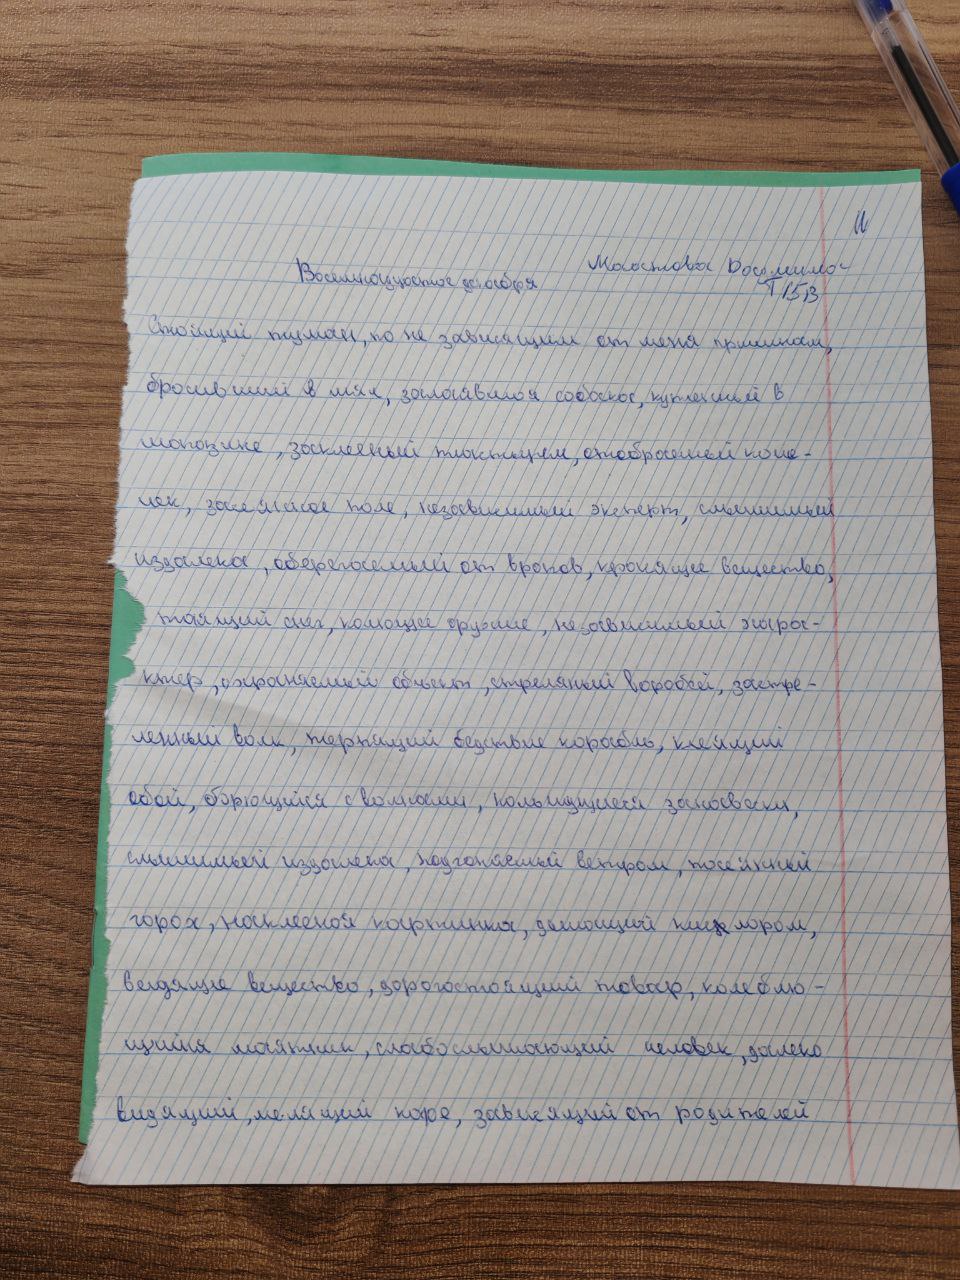 Восемнадцатое декабря
Т 15В
Стоящий туман, по не зависящим от меня причинам,
бросивший в мяч, залаявшая собака, купленный в
магазине, заклеенный пластырем, отобранный коше-
лек, засеянное поле, независимый эксперт, слышимый
издалека, оберегаемый от врагов, красящее вещество,
таящий снег, колющее оружие, независимый хара-
ктер, охраняемый объект, стреляный воробей, застре-
ленный волк, терпящий бедствие корабль, клеящий
обои, борющийся с волнами, колышущиеся занавески,
слышимый издалека, подгоняемый ветром, посеянный
горох, наклееная картинка, дышащий кислородом,
вещество, дорогостоящий товар, колеблю-
щийся маятник, слабослышающий человек, далеко
видящий, мелящий кофе, зависящий от родителей